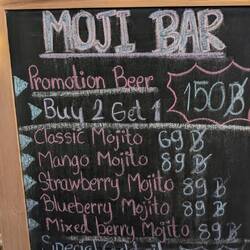 MOJI BAR
Promotion Beer
Buy 2 Get 1
150฿
Classic Mojito 69 ฿
Mango Mojito 89 ฿
Strawberry Mojito 89 ฿
Blueberry Mojito 89 ฿
Mixed Berry Mojito 89 ฿
Special